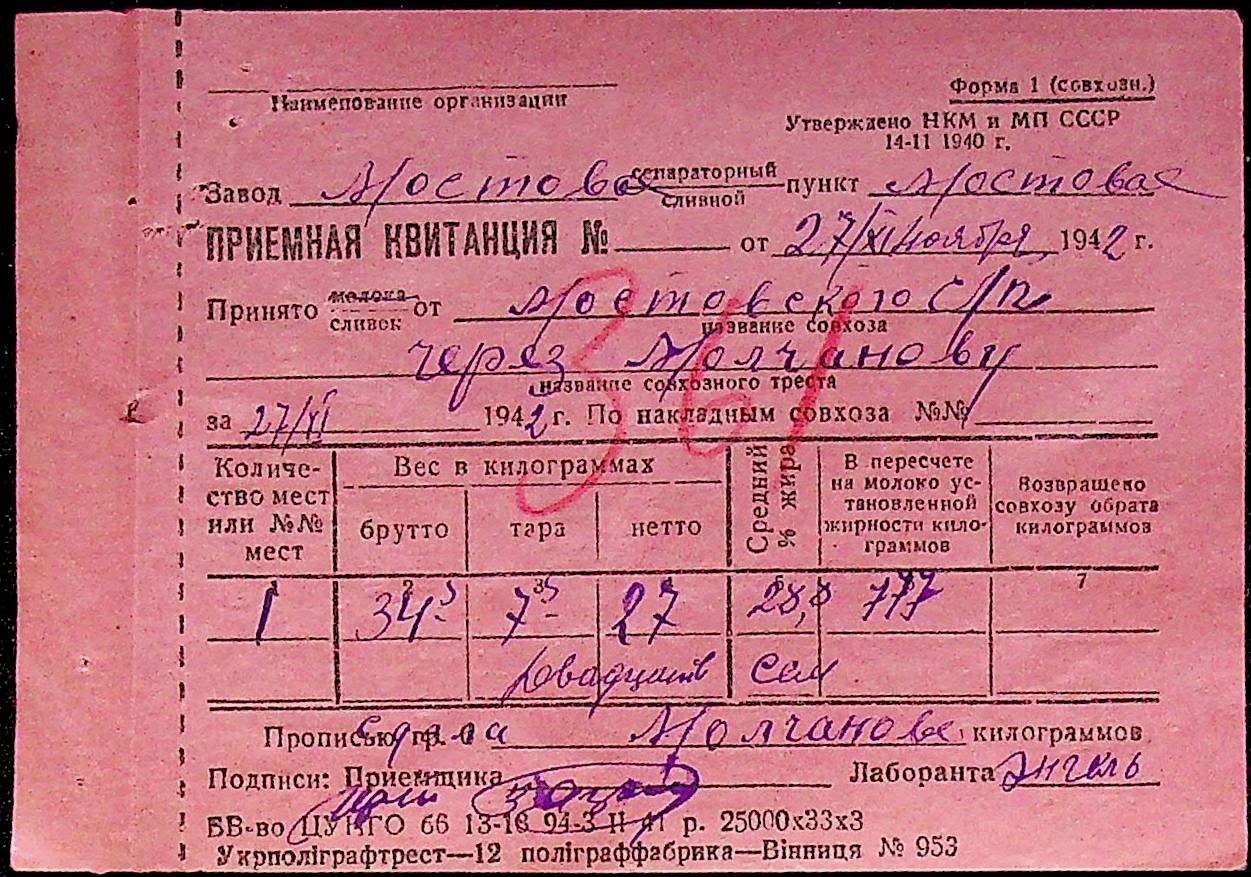 Наименование организации
Форма 1 (совхозн.)
Утверждено НКМ и МП СССР
14-11 1940 г.
Завод Мостовое сепараторный сливной пункт Мостовое
ПРИЕМНАЯ КВИТАНЦИЯ № от 27/XI Ноября 1942 г.
Принято молока сливок от Мостовского С/П
название совхоза
через Молчанову
название совхозного треста
за 27/XI 1942 г. По накладным совхоза №№
361
Количество мест или №№ мест
Вес в килограммах
брутто тара нетто
Средний % жира
В пересчете на молоко установленной жирности килограммов
Возвращено совхозу обрата килограммов
1 2 3 5 7
1 34,5 7,5 27 28,8 777
Двадцать сем
Прописью Сдала Молчанова килограммов
Подписи: Приемщика Лаборанта Энгель
БВ-во ЦУНГО 66 13-18 94-3 II 41 р. 25000х33х3
Укрполіграфтрест—12 поліграффабрика—Вінниця № 953